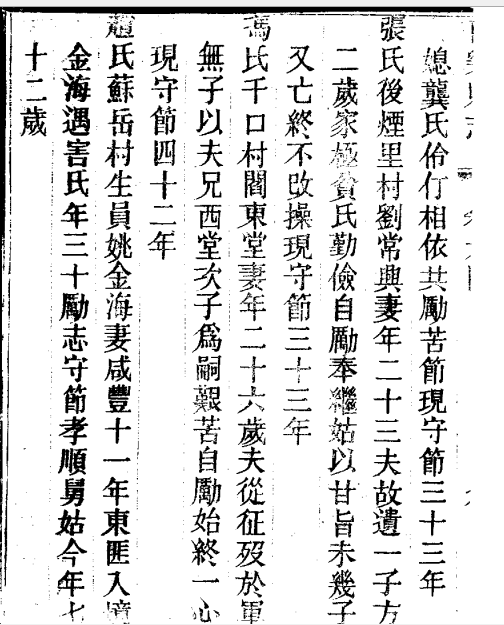 媳龔氏伶仃相依共勵苦節現守節三十三年
張氏後煙里村劉常興妻年二十三夫故遺一子方
二歲家極貧氏勤儉自勵奉繼姑以甘旨未幾子
又亡終不改操現守節三十三年
馮氏千口村閻東堂妻年二十六歲夫從征歿於軍
無子以夫兄西堂次子爲嗣艱苦自勵始終一心
現守節四十二年
趙氏蘇岳村生員姚金海妻咸豐十一年東匪入境
金海遇害氏年三十勵志守節孝順舅姑今年七
十二歲